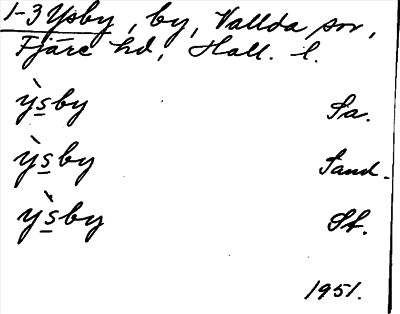 1-3 Ysby, by, Vallda sn,
Fjäre hd, Hall. l.
ỳs̲by Sa.
ỳs̲by Sand.
ỳs̲by St.
1951.